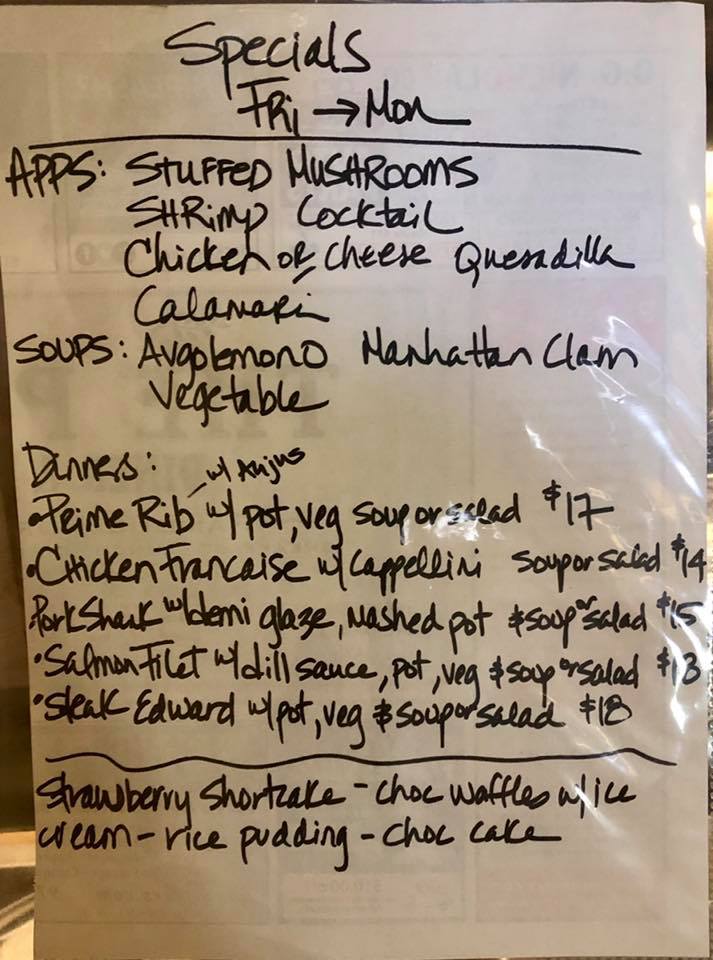 Specials
Fri → Mon
APPS: STUFFED MUSHROOMS
SHRimp Cocktail
Chicken or Cheese Quesadilla
Calamari
SOUPS: Avgolemono Manhattan Clam
Vegetable
Dinners: w/ Aujus
• Prime Rib w/ pot, veg soup or salad $17
• Chicken Francaise w/ Cappellini soup or salad $14
Pork Shank w/ demi glaze, Mashed pot & soup or salad $15
• Salmon Filet w/ dill sauce, pot, veg & soup or salad $13
• Steak Edward w/ pot, veg & soup or salad $18
Strawberry Shortcake - choc waffles w/ ice
cream - rice pudding - choc cake